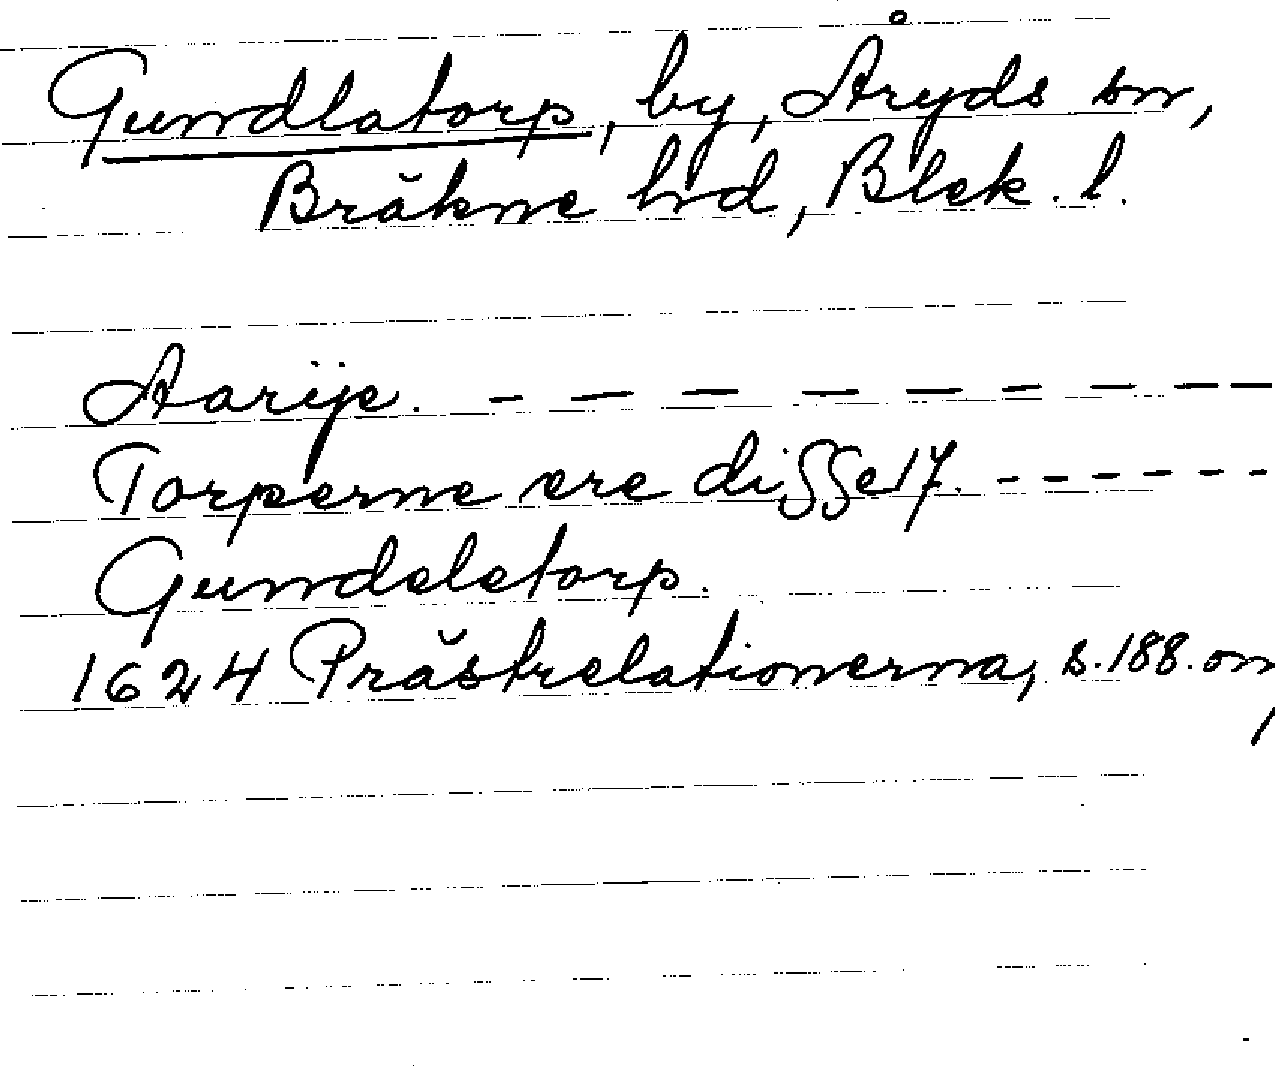 Gundlatorp, by, Åryds sn,
Bräkne hd, Blek. l.
Aarÿe. - - - - - - - - -
Torperne ere disse 17. - - - - - -
Gundeletorp.
1624 Prästrelationerna, s. 188. om